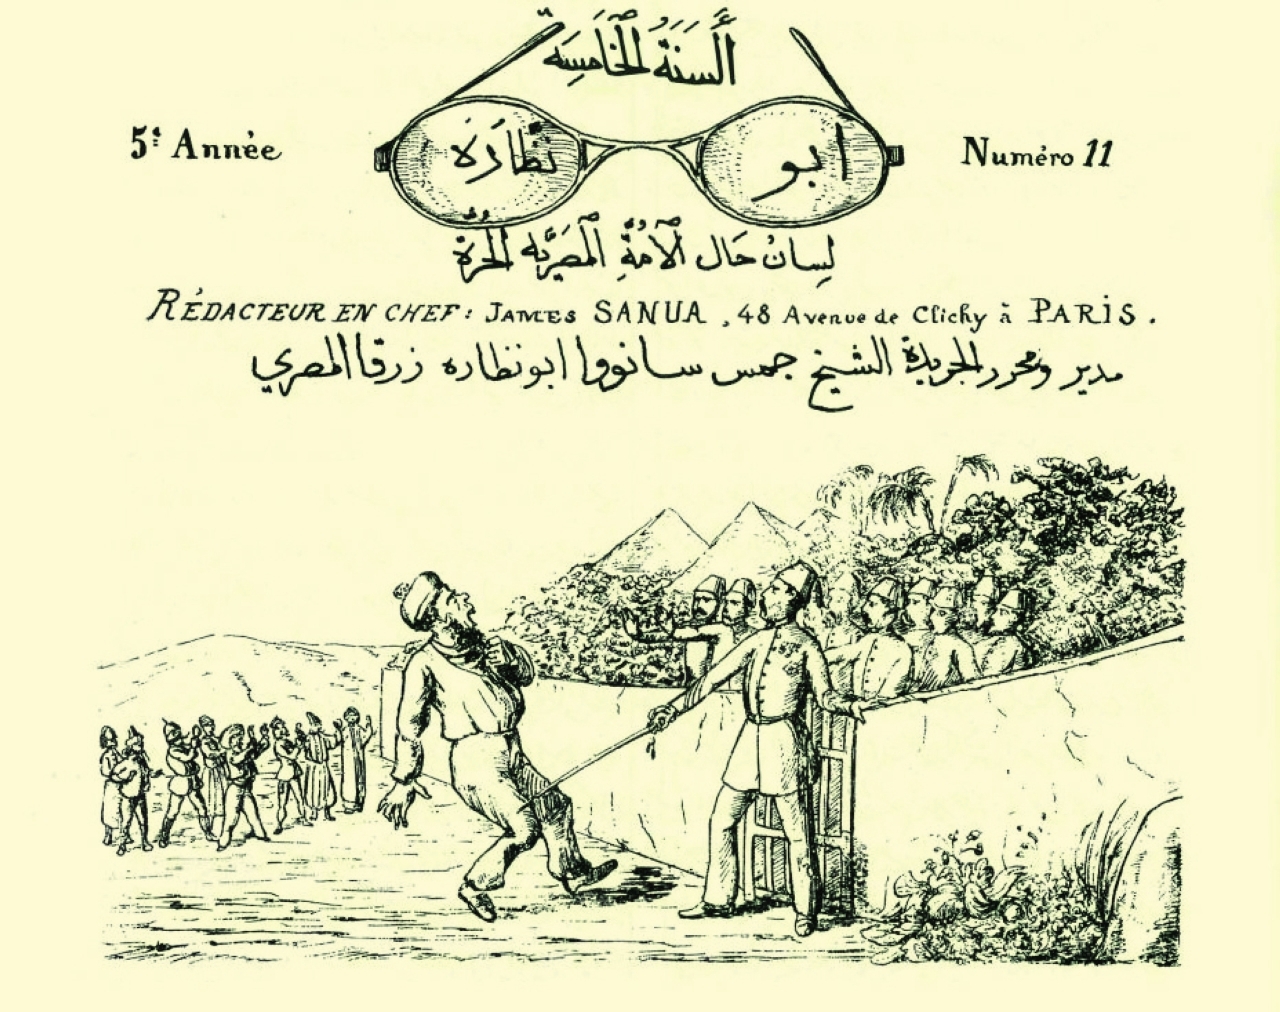 اَلسَّنَةُ الْخَامِسَة
5.e Année
ابو نظارَه
Numéro 11
لِسَانُ حَال اَلْأُمَّةِ اَلْمِصْرِيَّه الْحُرَّة
RÉDACTEUR EN CHEF: JAMES SANUA, 48 Avenue de Clichy à PARIS.
مدير ومحرر الجريدة الشيخ جمس سانووا ابو نظاره زرقا المصري